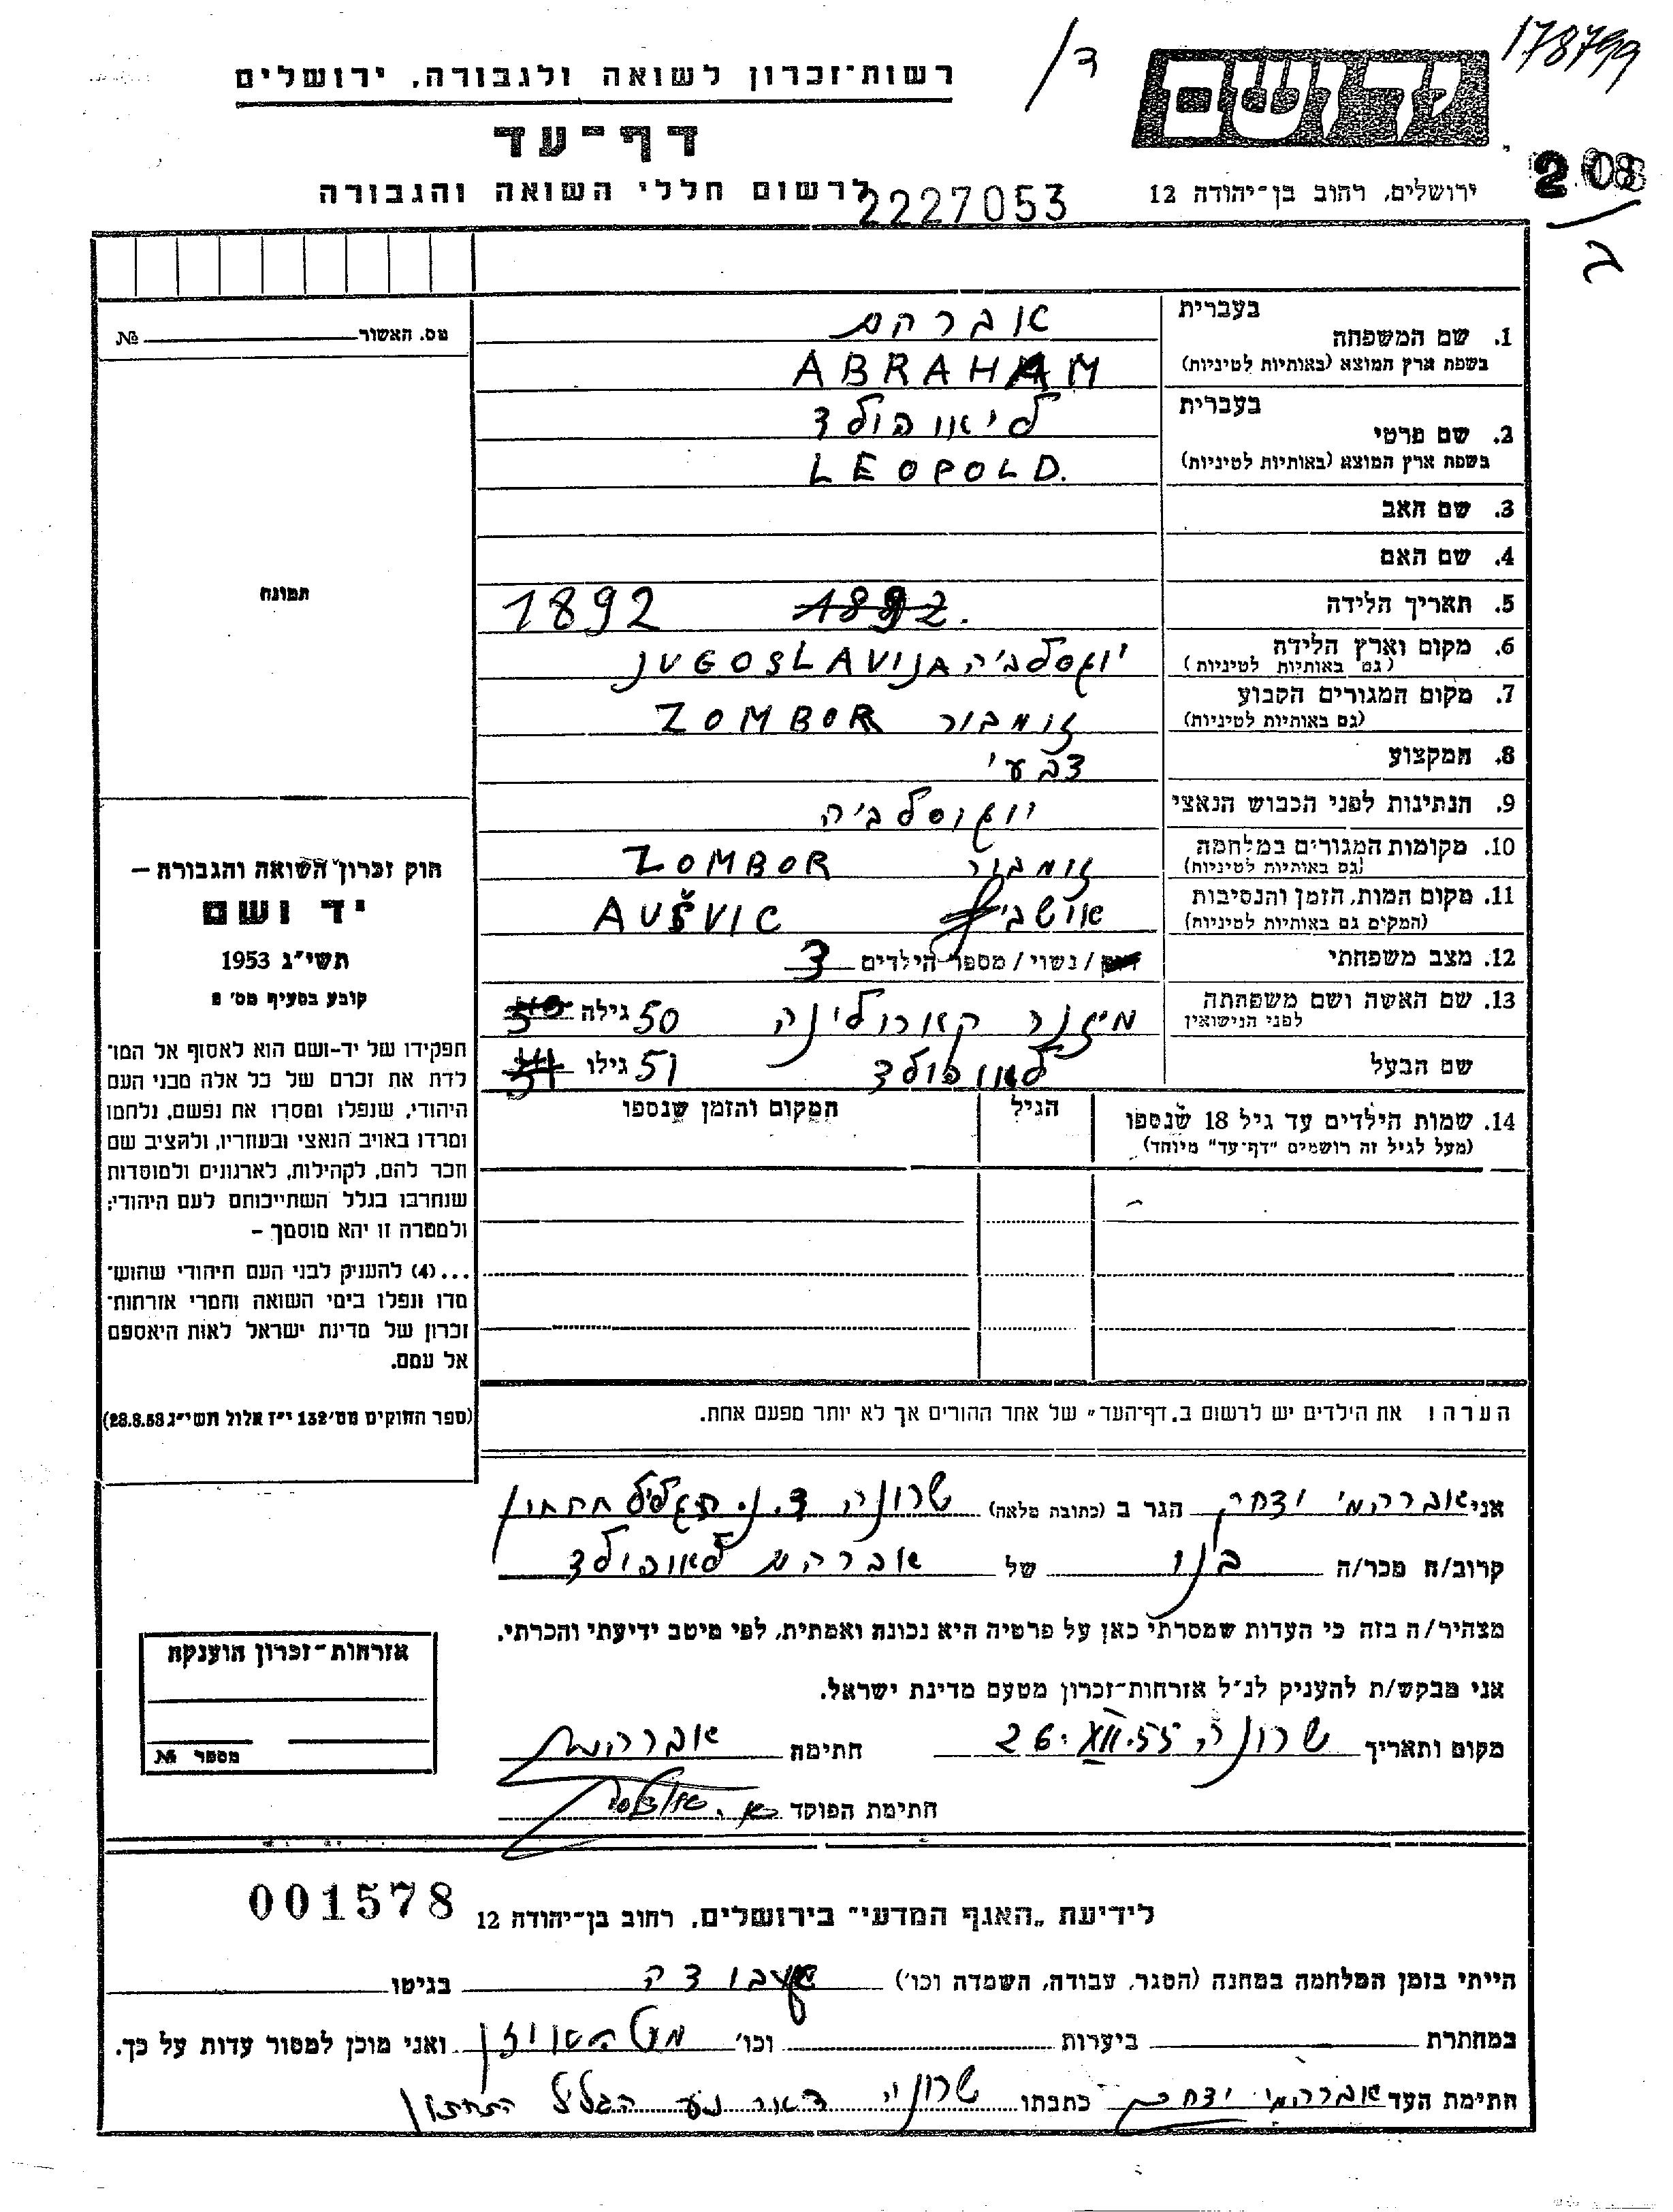 178799
ד/
יד ושם
רשות־זכרון לשואה ולגבורה, ירושלים
דף־עד
לרשום חללי השואה והגבורה
2227053
ירושלים, רחוב בן־יהודה 12
208
ב
מס. האשור №
בעברית
אברהם
1. שם המשפחה
בשפת ארץ המוצא (באותיות לטיניות)
ABRAHAM
בעברית
ליאופולד
2. שם פרטי
בשפת ארץ המוצא (באותיות לטיניות)
LEOPOLD.
3. שם האב
4. שם האם
תמונה
5. תאריך הלידה 1892. 1892
6. מקום וארץ הלידה
(גם באותיות לטיניות)
JUGOSLAVIJA
7. מקום המגורים הקבוע
(גם באותיות לטיניות)
זומבור ZOMBOR
8. המקצוע צבעי
9. הנתינות לפני הכבוש הנאצי יוגוסלביה
10. מקומות המגורים במלחמה
(גם באותיות לטיניות)
זומבור ZOMBOR
11. מקום המות, הזמן והנסיבות
(המקים גם באותיות לטיניות)
AUŠVIC
12. מצב משפחתי / נשוי / מספר הילדים 3
13. שם האשה ושם משפחתה
לפני הנישואין
קארולינה 50 גילה
שם הבעל לאופולד 51 גילו
חוק זכרון השואה והגבורה —
יד ושם
תשי״ג 1953
קובע בסעיף מס׳ 2
תפקידו של יד-ושם הוא לאסוף אל המו־
לדת את זכרם של כל אלה מבני העם
היהודי, שנפלו ומסרו את נפשם, נלחמו
ומרדו באויב הנאצי ובעוזריו, ולהציב שם
וזכר להם, לקהילות, לארגונים ולמוסדות
שנחרבו בגלל השתייכותם לעם היהודי;
ולמטרה זו יהא מוסמך —
...(4) להעניק לבני העם היהודי שהוש־
מדו ונפלו בימי השואה והמרי אזרחות־
זכרון של מדינת ישראל לאות היאספם
אל עמם.
(ספר החוקים מס׳ 132 י״ז אלול תשי״ג 28.8.53)
14. שמות הילדים עד גיל 18 שנספו
(מעל לגיל זה רושמים "דף־עד" מיוחד)
הגיל
המקום והזמן שנספו
הערה: את הילדים יש לרשום ב„דף־העד״ של אחד ההורים אך לא יותר מפעם אחת.
אני אברהמי יצחק הגר ב (כתובת מלאה) שרונה ד.נ. הגליל תחתון
קרוב/ה מכר/ה בנו של אברהם לאופולד
מצהיר/ה בזה כי העדות שמסרתי כאן על פרטיה היא נכונה ואמתית, לפי מיטב ידיעתי והכרתי.
אני מבקש/ת להעניק לנ״ל אזרחות־זכרון מטעם מדינת ישראל.
מקום ותאריך שרונה 26.XII.55 חתימה
חתימת הפוקד
אזרחות־זכרון הוענקה
מספר №
001578
לידיעת „האגף המדעי״ בירושלים, רחוב בן־יהודה 12
הייתי בזמן המלחמה במחנה (הסגר, עבודה, השמדה וכו׳) עבודה בגיטו
במחתרת ביערות וכו׳ מטהאוזן ואני מוכן למסור עדות על כך.
חתימת העד אברהמי יצחק כתבתו שרונה דאר נע הגליל התחתון